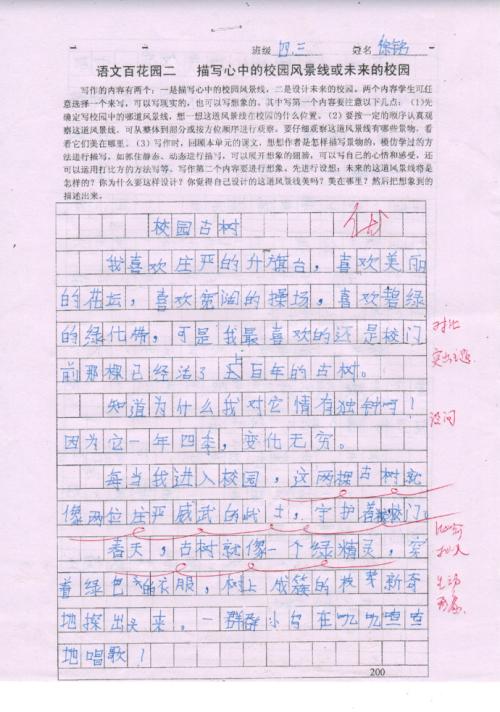 班级 四.三 姓名 徐铭
语文百花园二 描写心中的校园风景线或未来的校园
写作的内容有两个：一是描写心中的校园风景线，二是设计未来的校园。两个内容学生可任
意选择一个来写，可以写现实的，也可以写想象的，其中写第一个内容要注意以下几点：（1）先
确定写校园中的哪道风景线，想一想这道风景线在校园的什么位置。（2）要按一定的顺序认真观
察这道风景线，可从整体到部分或按方位顺序进行观察，要仔细观察这道风景线有哪些景物，看
看它们美在哪里。（3）写作时，回顾本单元的课文，想想作者是怎样描写景物的，模仿学过的方
法进行描写，如抓住静态、动态进行描写，可以展开想象的翅膀，可以写自己的心情和感受，还
可以运用打比方的方法写等。写作第二个内容要进行想象，先进行设想：未来的这道风景线将是
怎样的？你为什么要这样设计？你觉得自己设计的这道风景线美吗？美在哪里？然后把想象到的
描述出来。
校园古树
优
我喜欢庄严的升旗台，喜欢美丽
的花坛，喜欢宽阔的操场，喜欢碧绿
的绿化带，可是我最喜欢的还是校门
对比
前那棵已经活了上百年的古树。
突出主题
知道为什么我对它情有独钟吗！
设问
因为它一年四季，变化无穷。
每当我进入校园，这两棵古树就
像两位庄严威武的战士，守护着校门。
比喻
春天，古树就像一个绿精灵，穿
拟人
着绿色的衣服，树上成簇的枝芽新奇
生动
地探出头来。一群群小鸟在叽叽喳喳
形象
地唱歌！
200